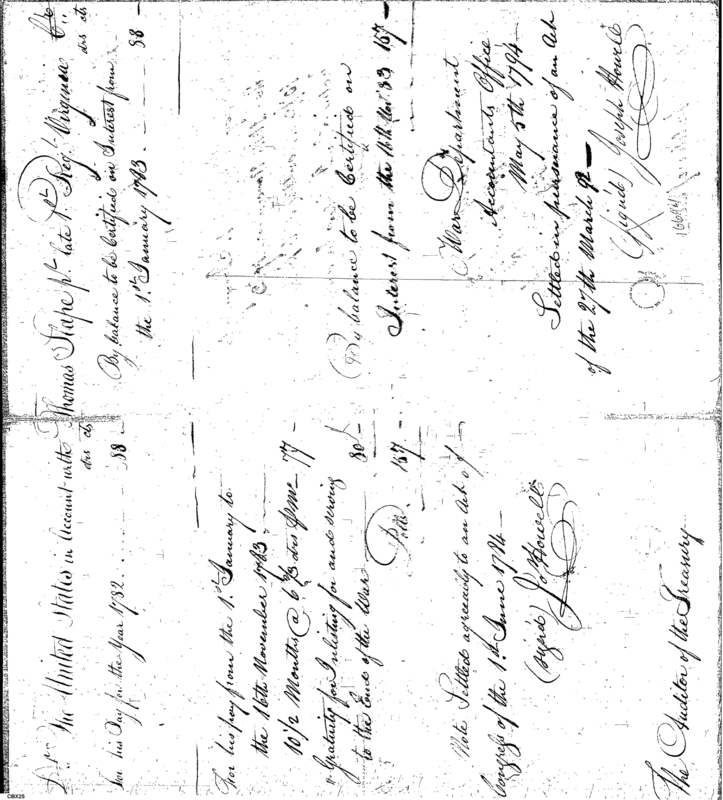 Dr. The United States in Account with Thomas Stape pt. late 1st Regt. Virginia Cr.
drs cts
drs cts
For his Pay for the Year 1782 88 -
By balance to be Certified on Interest from
the 1st January 1783 88 -
For his pay from the 1st January to
the 16th November 1783
10 1/2 Months @ 6 2/3 drs 77 -
Gratuity for Inlisting for and serving
to the End of the War 80 -
Dolls. 157 -
By balance to be Certified on
Interest from the 16th Nov. 83 157 -
Note Settled agreeably to an Act of
Congress of the 1st June 1794 -
(sign'd) Jo Howell
War Department
Accountants Office
May 5th 1794
Settled in persuance of an Act
of the 27th March 92 -
(Signed) Joseph Howell
The Auditor of the Treasury
CBX25